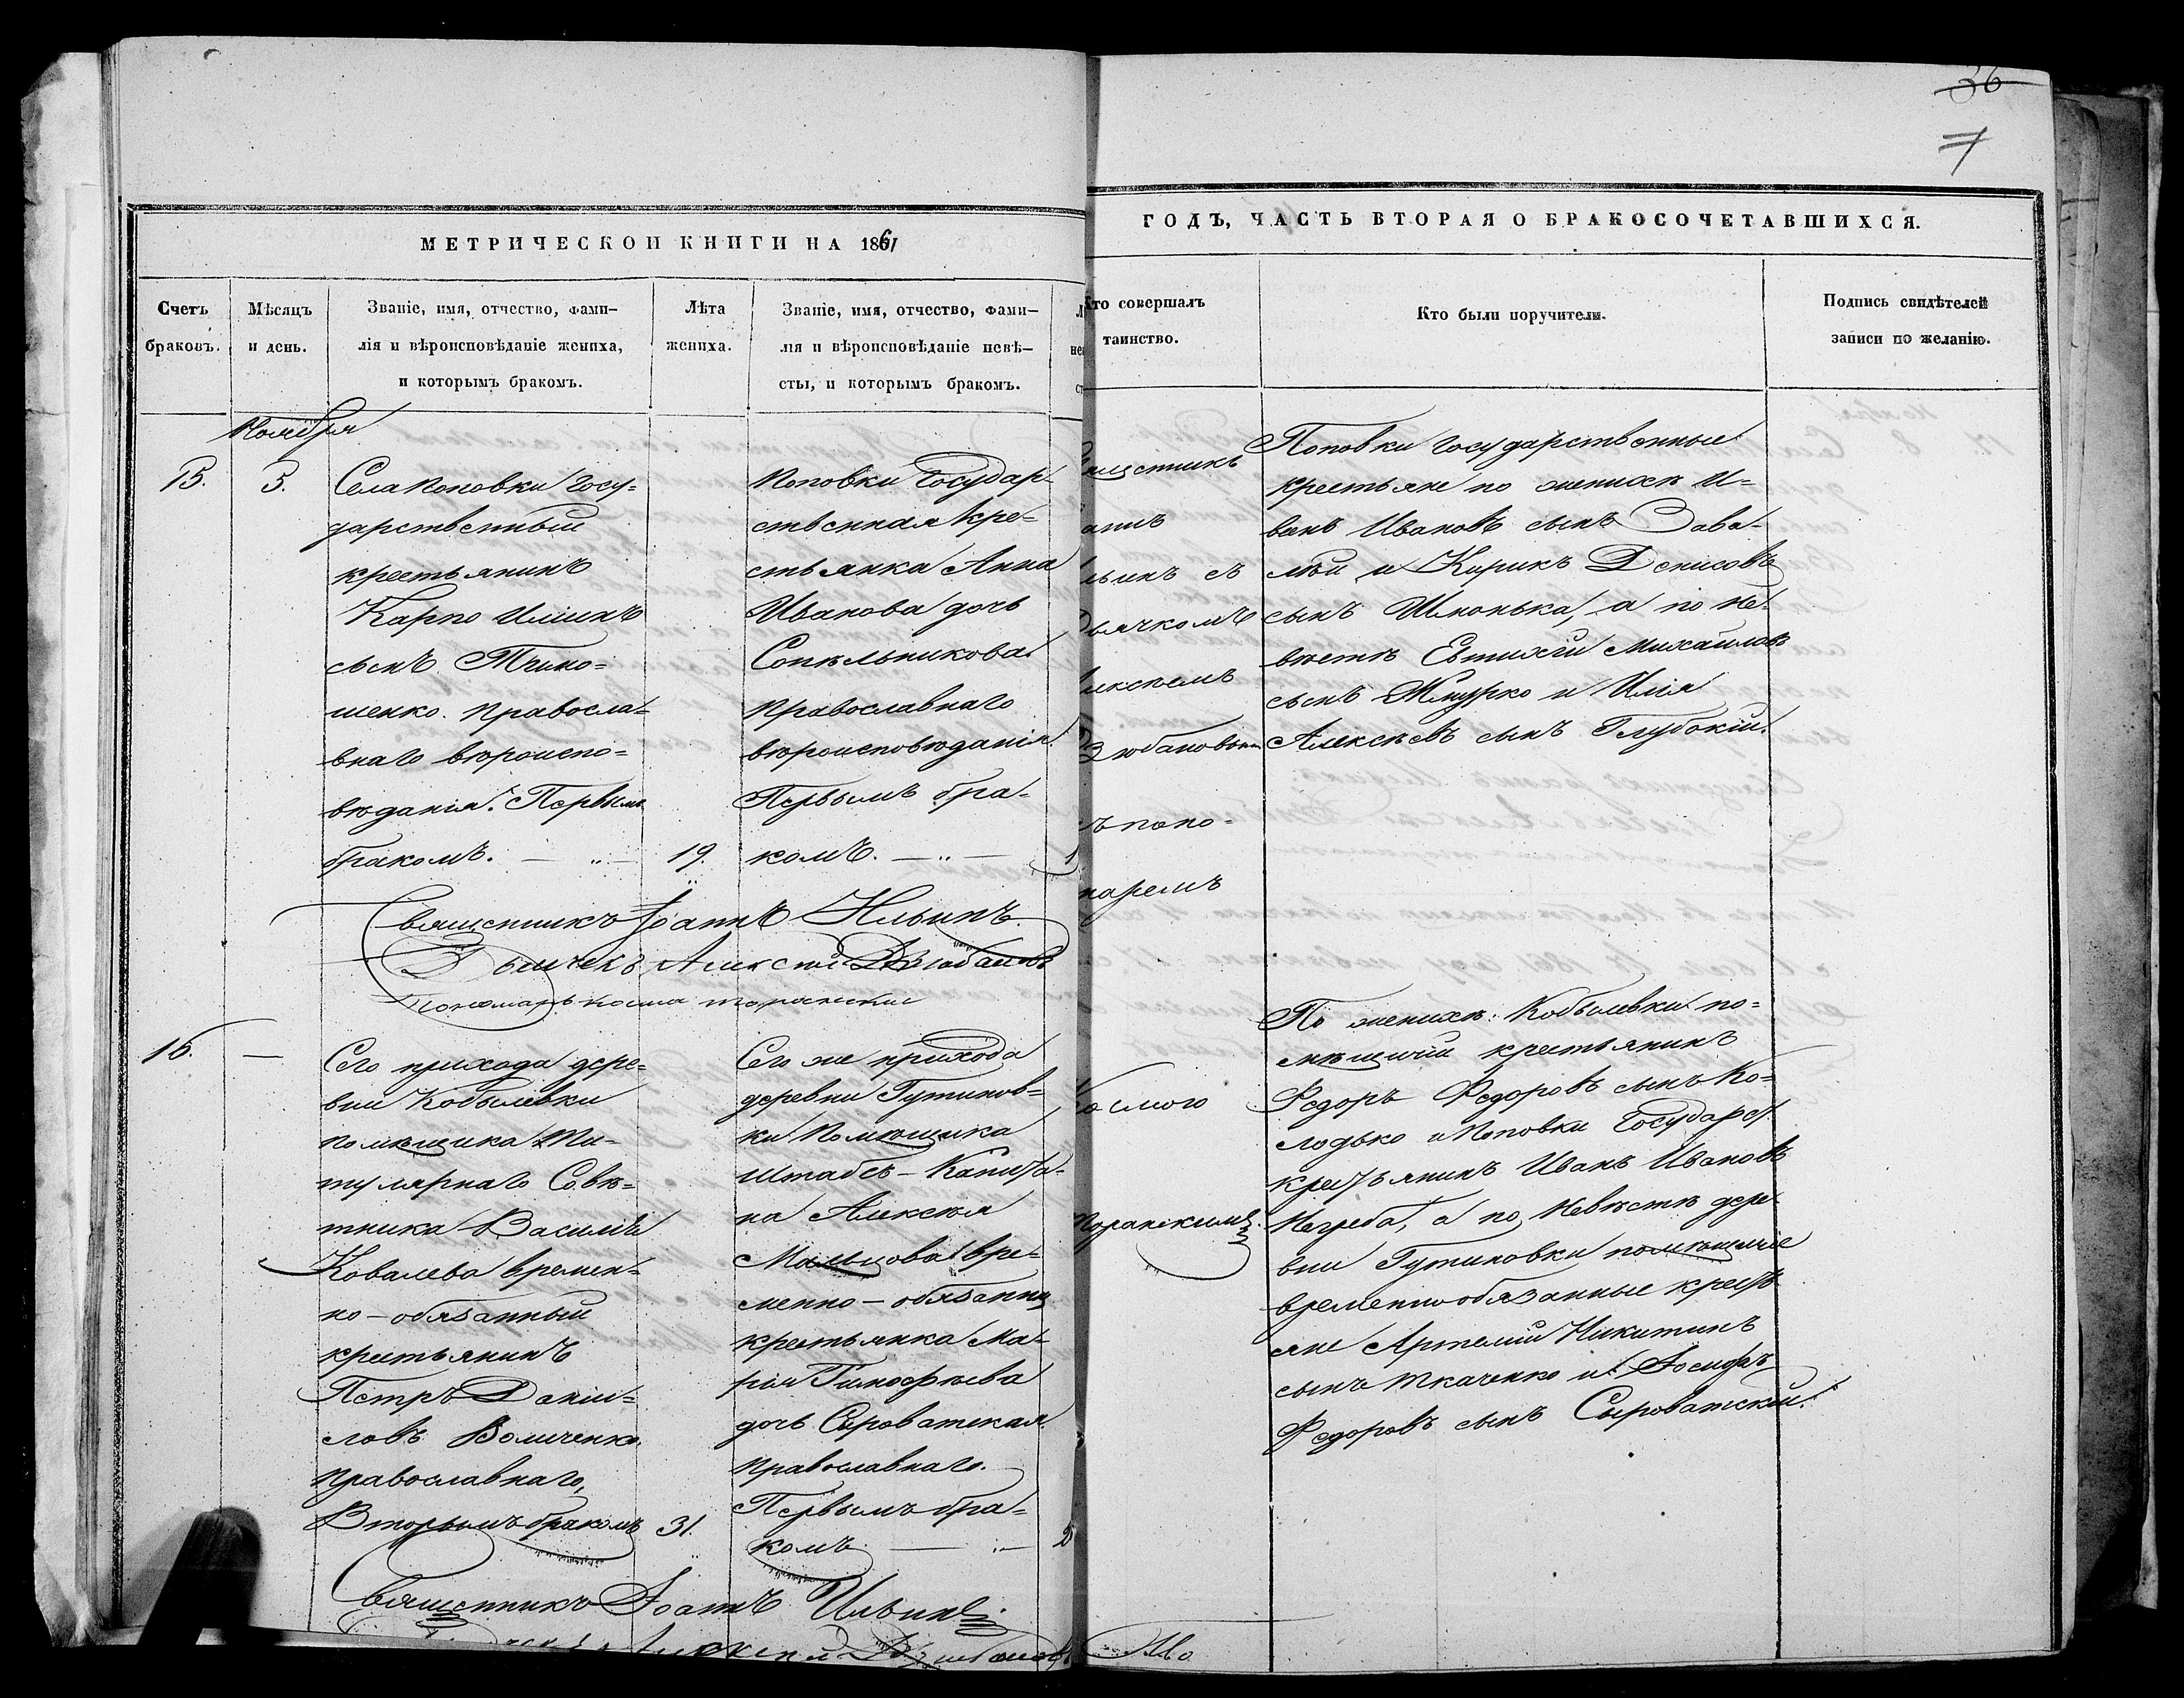 36
7
МЕТРИЧЕСКОИ КНИГИ НА 1861
ГОДЪ, ЧАСТЬ ВТОРАЯ О БРАКОСОЧЕТАВШИХСЯ.
Счетъ
браковъ.
Мѣсяцъ
и день.
Званіе, имя, отчество, фами-
лія и вѣроисповѣданіе жениха,
и которымъ бракомъ.
Лѣта
жениха.
Званіе, имя, отчество, фами-
лія и вѣроисповѣданіе невѣ-
сты, и которымъ бракомъ.
Кто совершалъ
таинство.
Кто были поручители.
Подпись свидѣтелей
записи по желанію.
Ноября
15.
5.
Села Поповки Госу-
дарственный
крестьянинъ
Карпо Иліинъ
сынъ
шенко. Правосла-
внаго вѣроиспо-
вѣданія. Первымъ
бракомъ. — „ —
19.
Поповки Государ-
ственная кре-
стьянка Анна
Иванова дочь
Сопѣльникова
Православнаго
вѣроисповѣданія.
Первымъ бра-
комъ. — „ —
1
ященникъ
анъ
льинъ съ
Дьячкомъ
лексѣемъ
Дзюбановымъ
ъ поно-
маремъ
Поповки государственные
крестьяне по женихѣ И-
ванъ Ивановъ сынъ Зава-
лѣй и Кирикъ Денисовъ
сынъ Шпонька, а по не-
вѣстѣ Евтихій Михайловъ
сынъ Жмурко и Илія
Алексѣевъ сынъ Глубокій.
Священникъ Іоаннъ Ильинъ.
Дьячекъ Алексѣй Дзюбановъ
Пономарь Косма
16.
—
Сего прихода дере-
вни Кобылевки
помѣщика Ти-
тулярнаго Совѣ-
тника Василія
Ковалева времен-
но-обязанный
крестьянинъ
Петръ Даніи-
ловъ Воличенко
Православнаго,
Вторымъ бракомъ
31.
Сего же прихода
деревни Гутинов-
ки Помѣщика
Штабсъ-Капита-
на Алексѣя
вре-
менно-обязанная
крестьянка Ма-
рія Тимофѣева
дочь Сыроватская
Православнаго.
Первымъ бра-
комъ — „ —
2
Космою
По женихѣ: Кобылевки по-
мѣщичій крестьянинъ
Федоръ Федоровъ сынъ Ко-
лодько и Поповки Государст.
крестьянинъ Иванъ Ивановъ
Негреба, а по Невѣстѣ дере-
вни Гутиновки помѣщичіе
временнообязанные кресть-
яне Артемій Никитинъ
сынъ Ткаченко и Іосифъ
Федоровъ сынъ Сыроватскій.
Священникъ Іоаннъ Ильинъ
Дьячекъ Алексѣй Дзюбановъ